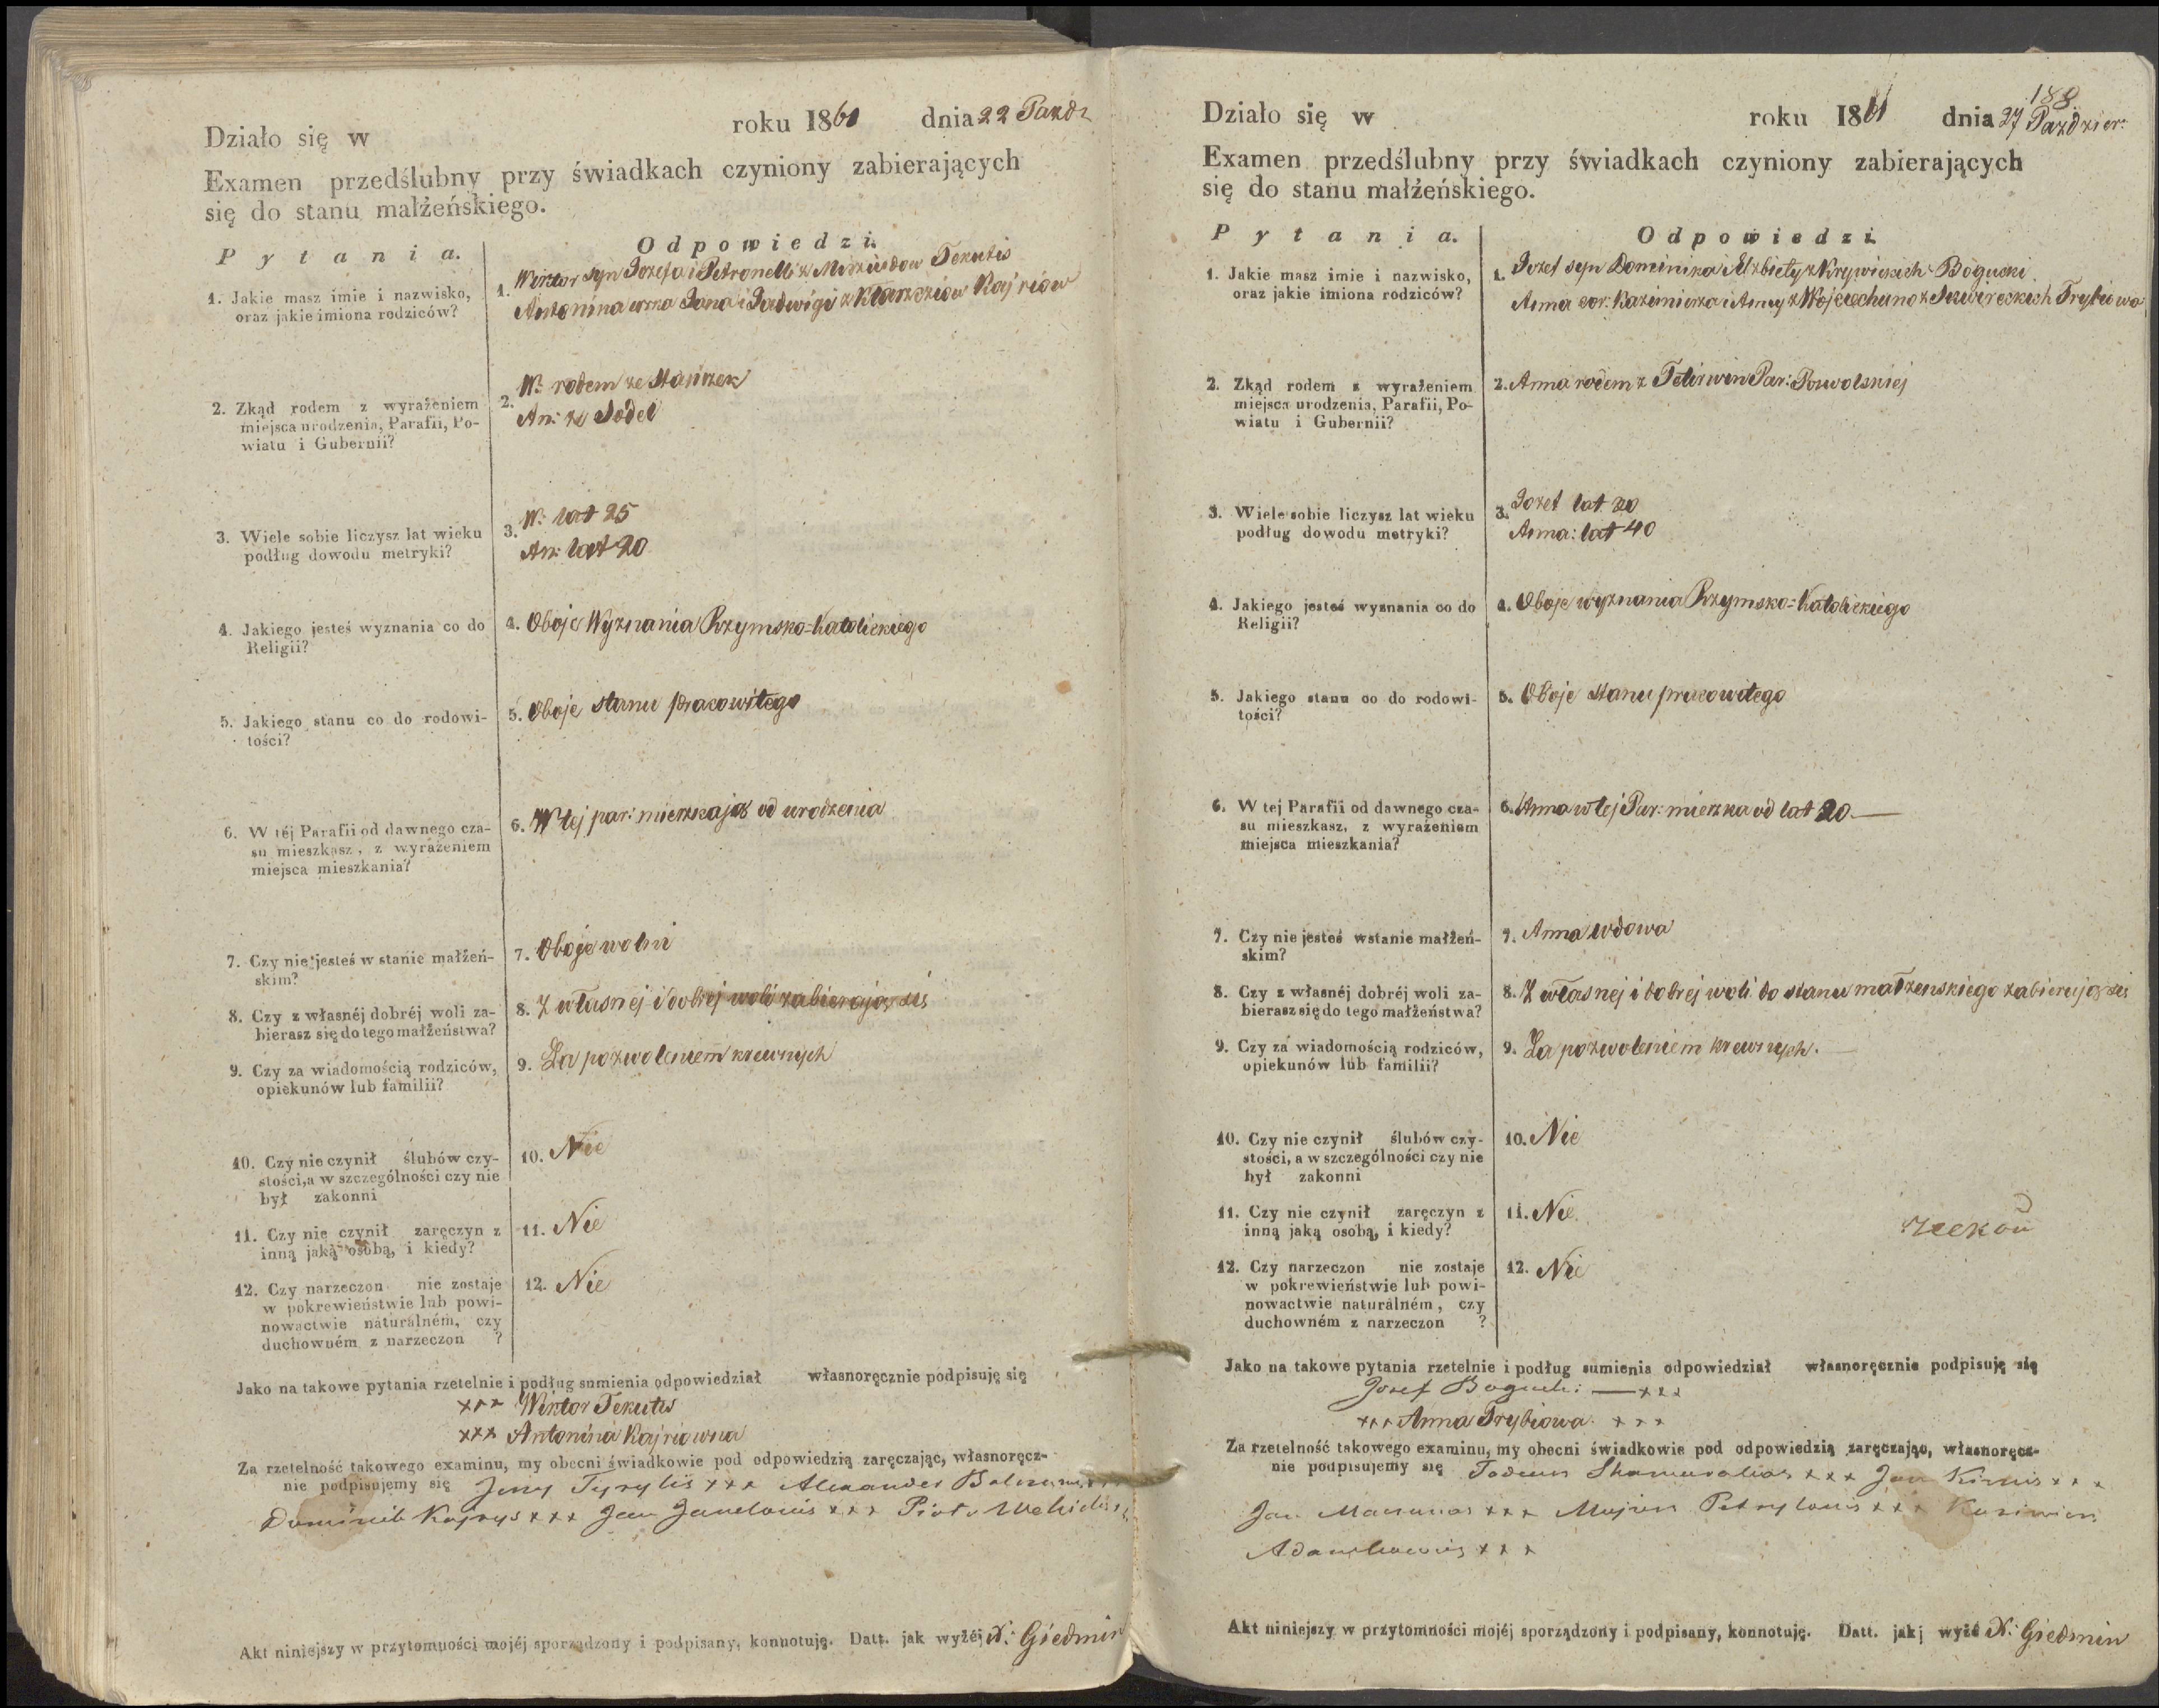 Działo się w roku 1861 dnia 22 Paźdz
Examen przedślubny przy świadkach czyniony zabierających
się do stanu małżeńskiego.
Pytania.
Odpowiedzi.
1. Jakie masz imie i nazwisko,
oraz jakie imiona rodziców?
1. Wiktor syn Jozefa i Petronelli z Tekutis
Antonina corka Jana i Jadwigi z Kajriów
2. Zkąd rodem z wyrażeniem
miejsca urodzenia, Parafii, Po-
wiatu i Gubernii?
2. W: rodem ze
An: ze Sodel
3. Wiele sobie liczysz lat wieku
podług dowodu metryki?
3. W: lat 25
An: lat 20
4. Jakiego jesteś wyznania co do
Religii?
4. Oboje Wyznania Rzymsko=Katolickiego
5. Jakiego stanu co do rodowi-
tości?
5. Oboje stanu pracowitego
6. W téj Parafii od dawnego cza-
su mieszkasz, z wyrażeniem
miejsca mieszkania?
6. W tej par: mieszkają od urodzenia
7. Czy nie jesteś w stanie małżeń-
skim?
7. Oboje wolni
8. Czy z własnéj dobréj woli za-
bierasz się do tego małżeństwa?
8. Z własnej i dobrej woli zabierają się
9. Czy za wiadomością rodziców,
opiekunów lub familii?
9. Za pozwoleniem krewnych
10. Czy nie czynił ślubów czy-
stości, a w szczególności czy nie
był zakonni
10. Nie
11. Czy nie czynił zaręczyn z
inną jaką osobą, i kiedy?
11. Nie
12. Czy narzeczon nie zostaje
w pokrewieństwie lub powi-
nowactwie naturálném, czy
duchowném z narzeczon ?
12. Nie
Jako na takowe pytania rzetelnie i podług sumienia odpowiedział własnoręcznie podpisuję się
xxx Wiktor Tekutis
xxx Antonina Kajriowna
Za rzetelność takowego examinu, my obecni świadkowie pod odpowiedzią zaręczając, własnoręcz-
nie podpisujemy się Jerzy xxx Alexander
Dominik Kajrys xxx Jan xxx Piotr
Akt niniejszy w przytomności mojéj sporządzony i podpisany, konnotuję. Datt. jak wyżéj X: Giedmin
188
Działo się w roku 1861 dnia 27 Paździer:
Examen przedślubny przy świadkach czyniony zabierających
się do stanu małżeńskiego.
Pytania.
Odpowiedzi.
1. Jakie masz imie i nazwisko,
oraz jakie imiona rodziców?
1. Jozef syn Dominika i Elzbiety z Krywickich Boguski
Anna cor: Kazimierza i Anny z Trybiowa
2. Zkąd rodem z wyrażeniem
miejsca urodzenia, Parafii, Po-
wiatu i Gubernii?
2. Anna rodem z Tetirwin Par: Powolskiej
3. Wiele sobie liczysz lat wieku
podług dowodu metryki?
3. Jozef lat
Anna: lat 40
4. Jakiego jesteś wyznania co do
Religii?
4. Oboje wyznania Rzymsko=Katolickiego
5. Jakiego stanu co do rodowi-
tości?
5. Oboje stanu pracowitego
6. W tej Parafii od dawnego cza-
su mieszkasz, z wyrażeniem
miejsca mieszkania?
6. Anna w tej Par: mieszka od lat 20
7. Czy nie jesteś w stanie małżeń-
skim?
7. Anna wdowa
8. Czy z własnéj dobréj woli za-
bierasz się do tego małżeństwa?
8. Z własnej i dobrej woli do stanu małżenskiego zabierają się
9. Czy za wiadomością rodziców,
opiekunów lub familii?
9. Za pozwoleniem krewnych.
10. Czy nie czynił ślubów czy-
stości, a w szczególności czy nie
był zakonni
10. Nie
11. Czy nie czynił zaręczyn z
inną jaką osobą, i kiedy?
11. Nie
12. Czy narzeczon nie zostaje
w pokrewieństwie lub powi-
nowactwie naturálném, czy
duchowném z narzeczon ?
12. Nie
Jako na takowe pytania rzetelnie i podług sumienia odpowiedział własnoręcznie podpisuję się
Jozef Boguski xxx
xxx Anna Trybiowa xxx
Za rzetelność takowego examinu, my obecni świadkowie pod odpowiedzią zaręczając, własnoręcz-
nie podpisujemy się Tadeusz xxx Jan xxx
Jan xxx xxx Kazimierz
xxx
Akt niniejszy w przytomności mojéj sporządzony i podpisany, konnotuję. Datt. jakj wyżé X: Giedmin